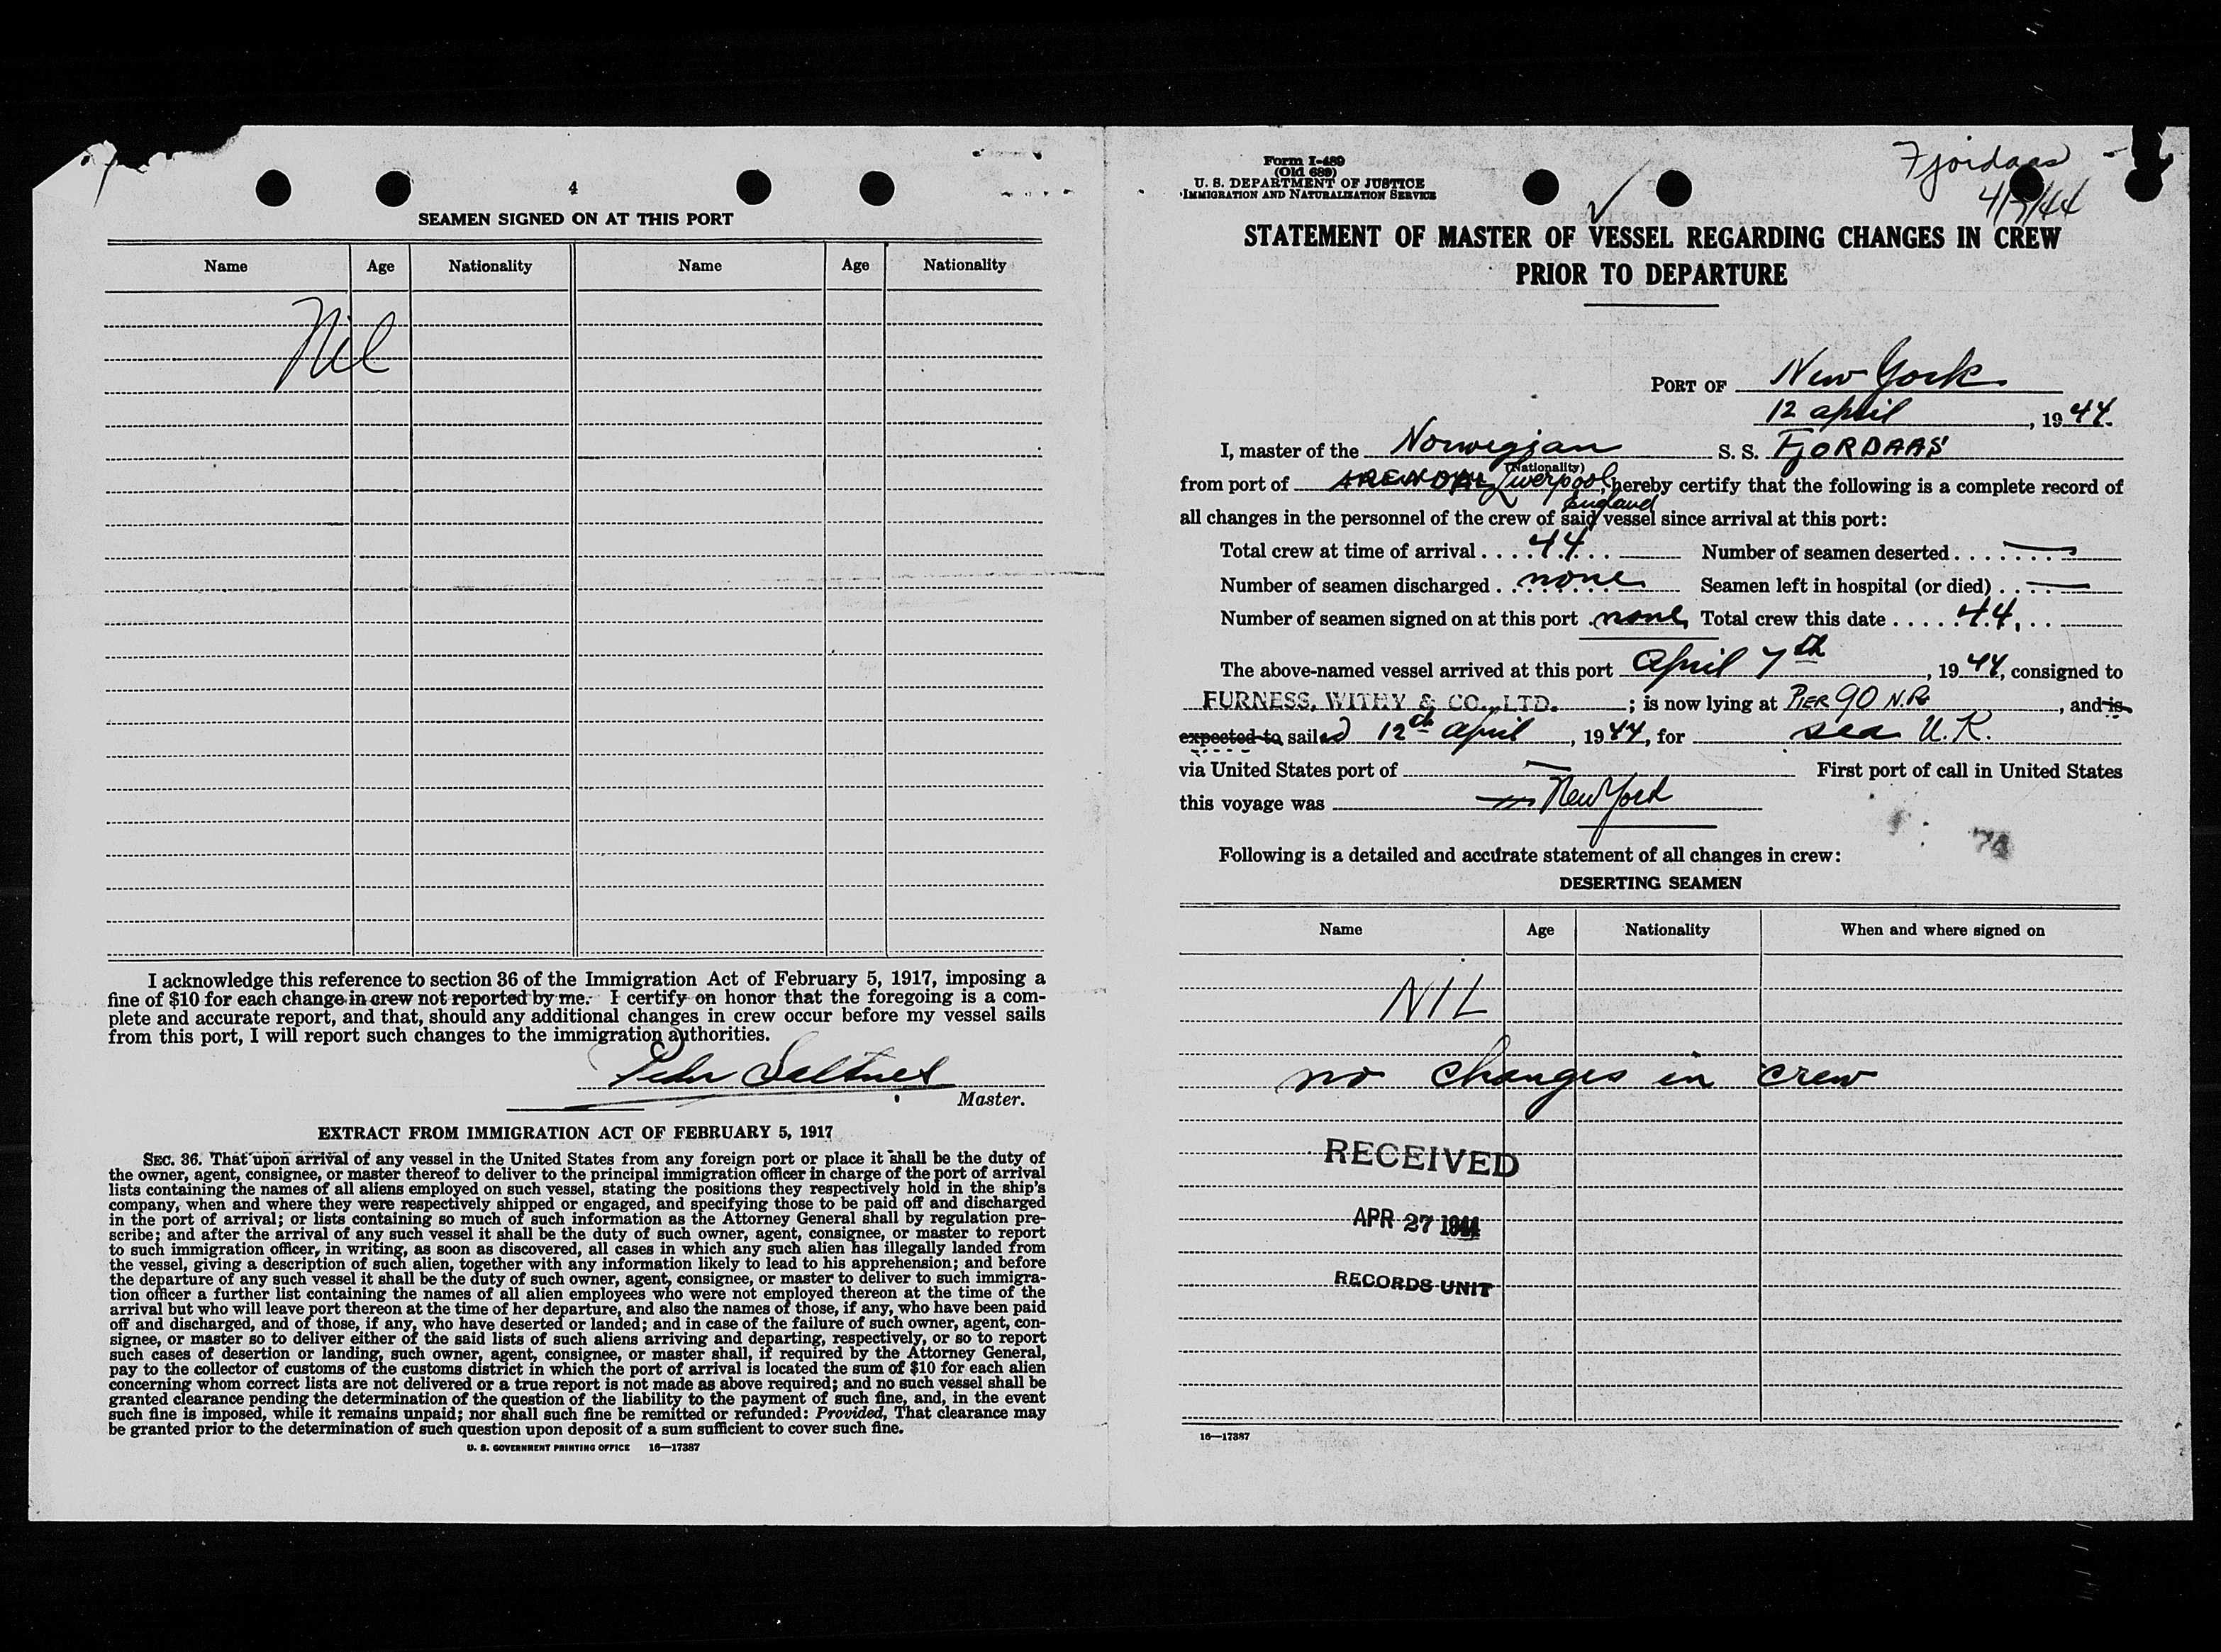 4
SEAMEN SIGNED ON AT THIS PORT
Name Age Nationality Name Age Nationality
Nil
I acknowledge this reference to section 36 of the Immigration Act of February 5, 1917, imposing a
fine of $10 for each change in crew not reported by me. I certify on honor that the foregoing is a com-
plete and accurate report, and that, should any additional changes in crew occur before my vessel sails
from this port, I will report such changes to the immigration authorities.
Master.
EXTRACT FROM IMMIGRATION ACT OF FEBRUARY 5, 1917
SEC. 36. That upon arrival of any vessel in the United States from any foreign port or place it shall be the duty of
the owner, agent, consignee, or master thereof to deliver to the principal immigration officer in charge of the port of arrival
lists containing the names of all aliens employed on such vessel, stating the positions they respectively hold in the ship's
company, when and where they were respectively shipped or engaged, and specifying those to be paid off and discharged
in the port of arrival; or lists containing so much of such information as the Attorney General shall by regulation pre-
scribe; and after the arrival of any such vessel it shall be the duty of such owner, agent, consignee, or master to report
to such immigration officer, in writing, as soon as discovered, all cases in which any such alien has illegally landed from
the vessel, giving a description of such alien, together with any information likely to lead to his apprehension; and before
the departure of any such vessel it shall be the duty of such owner, agent, consignee, or master to deliver to such immigra-
tion officer a further list containing the names of all alien employees who were not employed thereon at the time of the
arrival but who will leave port thereon at the time of her departure, and also the names of those, if any, who have been paid
off and discharged, and of those, if any, who have deserted or landed; and in case of the failure of such owner, agent, con-
signee, or master so to deliver either of the said lists of such aliens arriving and departing, respectively, or so to report
such cases of desertion or landing, such owner, agent, consignee, or master shall, if required by the Attorney General,
pay to the collector of customs of the customs district in which the port of arrival is located the sum of $10 for each alien
concerning whom correct lists are not delivered or a true report is not made as above required; and no such vessel shall be
granted clearance pending the determination of the question of the liability to the payment of such fine, and, in the event
such fine is imposed, while it remains unpaid; nor shall such fine be remitted or refunded: Provided, That clearance may
be granted prior to the determination of such question upon deposit of a sum sufficient to cover such fine.
U. S. GOVERNMENT PRINTING OFFICE 16—17387
Form I-489
(Old 689)
U. S. DEPARTMENT OF JUSTICE
IMMIGRATION AND NATURALIZATION SERVICE
Fjordaas
4/7/44
STATEMENT OF MASTER OF VESSEL REGARDING CHANGES IN CREW
PRIOR TO DEPARTURE
PORT OF New York
12 april, 1944.
I, master of the Norwegian S. S. FJORDAAS
(Nationality)
from port of ARENDAL Liverpool, hereby certify that the following is a complete record of
England
all changes in the personnel of the crew of said vessel since arrival at this port:
Total crew at time of arrival .... 44 Number of seamen deserted .... —
Number of seamen discharged . none Seamen left in hospital (or died) .... —
Number of seamen signed on at this port . none, Total crew this date ..... 44.
The above-named vessel arrived at this port April 7th, 1944, consigned to
FURNESS, WITHY & CO., LTD. ; is now lying at PIER 90 N.R., and is
expected to sailed 12th april, 1944, for sea U.K.
via United States port of — First port of call in United States
this voyage was New York
Following is a detailed and accurate statement of all changes in crew:
DESERTING SEAMEN
Name Age Nationality When and where signed on
NIL
no changes in crew
RECEIVED
APR 27 1944
RECORDS UNIT
16—17387